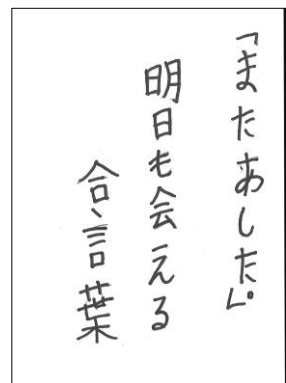 「またあした」。
明日も会える
合言葉